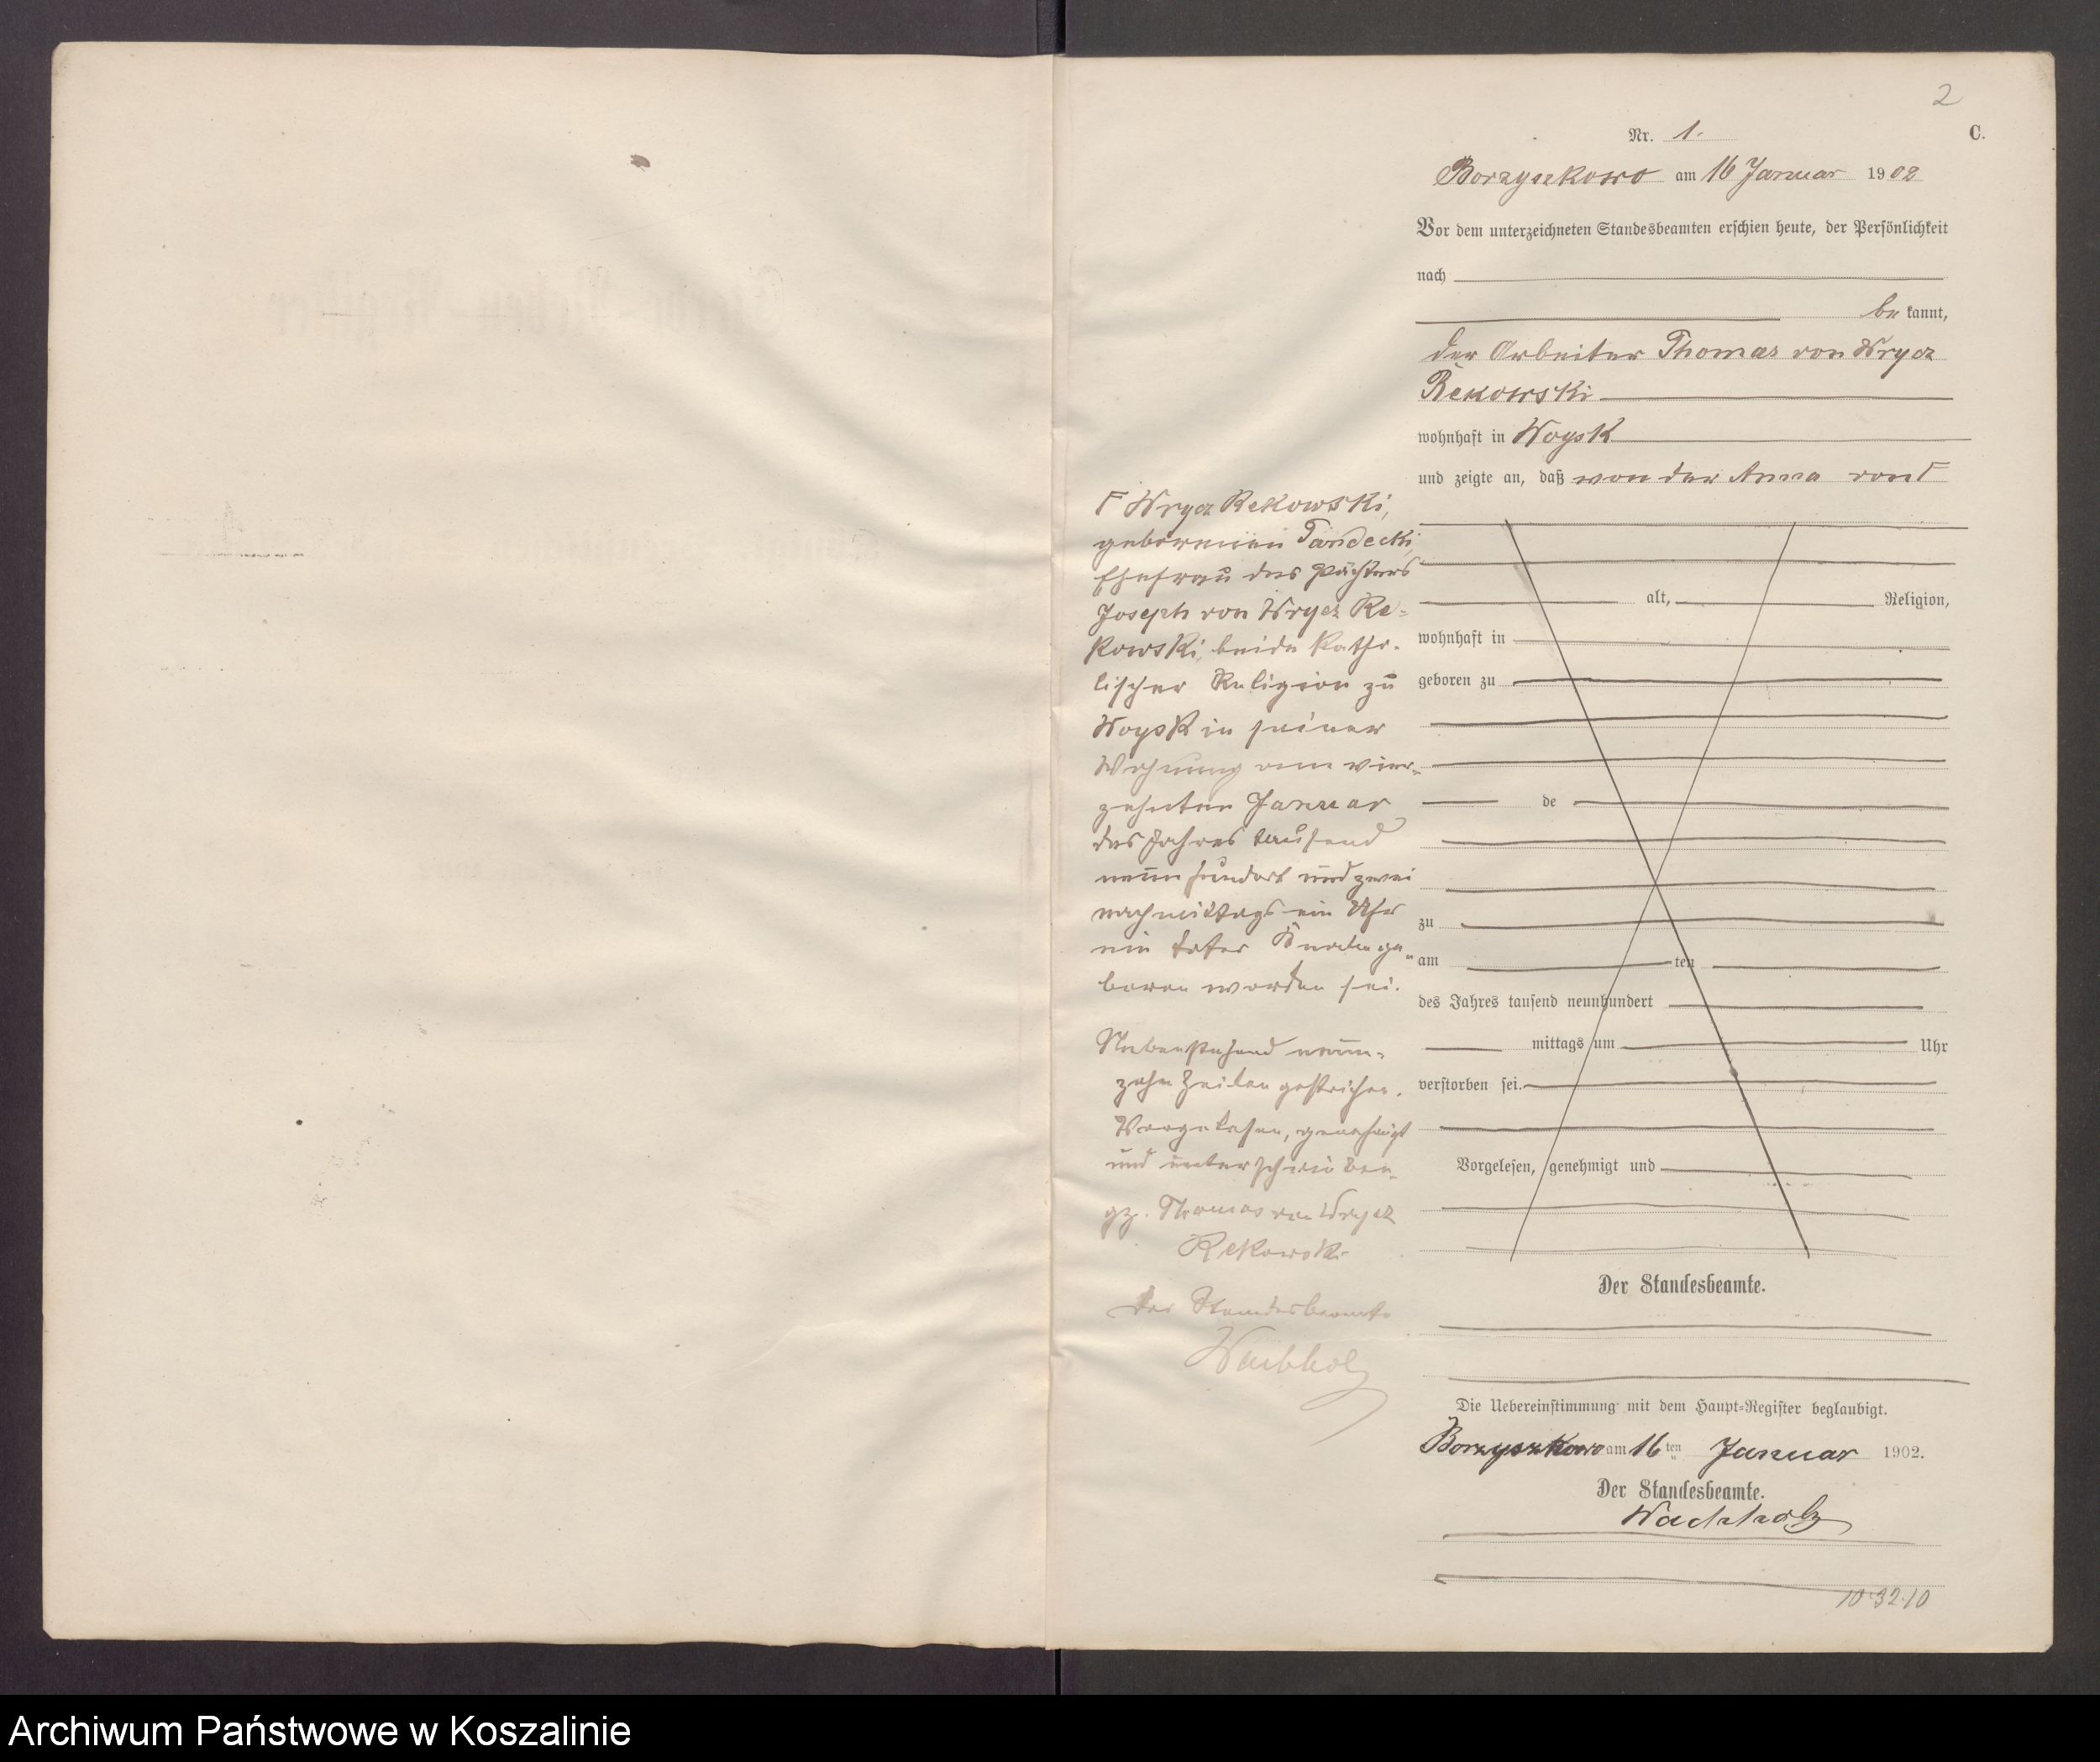 2
Nr. 1.
C.
Borzyszkowo am 16 Januar 1902
Vor dem unterzeichneten Standesbeamten erschien heute, der Persönlichkeit
nach
be kannt,
der Arbeiter Thomas von Wrycz
Rekowski
wohnhaft in Woysk
und zeigte an, daß von der Anna von Γ
Γ Wrycz Rekowski,
geborenen Pandecki,
Ehefrau des Pächters
Joseph von Wrycz Re-
kowski, beide katho-
lischer Religion zu
Woysk in seiner
Wohnung am vier-
zehnten Januar
des Jahres tausend
neunhundert und zwei
nachmittags ein Uhr
ein toter Knabe ge-
boren worden sei.
Nebenstehend neun-
zehn Zeilen gestrichen.
Vorgelesen, genehmigt
und unterschrieben.
gz. Thomas von Wrycz
Rekowski
Der Standesbeamte
Wachholz
alt, Religion,
wohnhaft in
geboren zu
de
zu
am ten
des Jahres tausend neunhundert
mittags um Uhr
verstorben sei.
Vorgelesen, genehmigt und
Der Standesbeamte.
Die Uebereinstimmung mit dem Haupt-Register beglaubigt.
Borzyszkowo am 16 ten Januar 1902.
Der Standesbeamte.
Wachholz
10.32.10
Archiwum Państwowe w Koszalinie